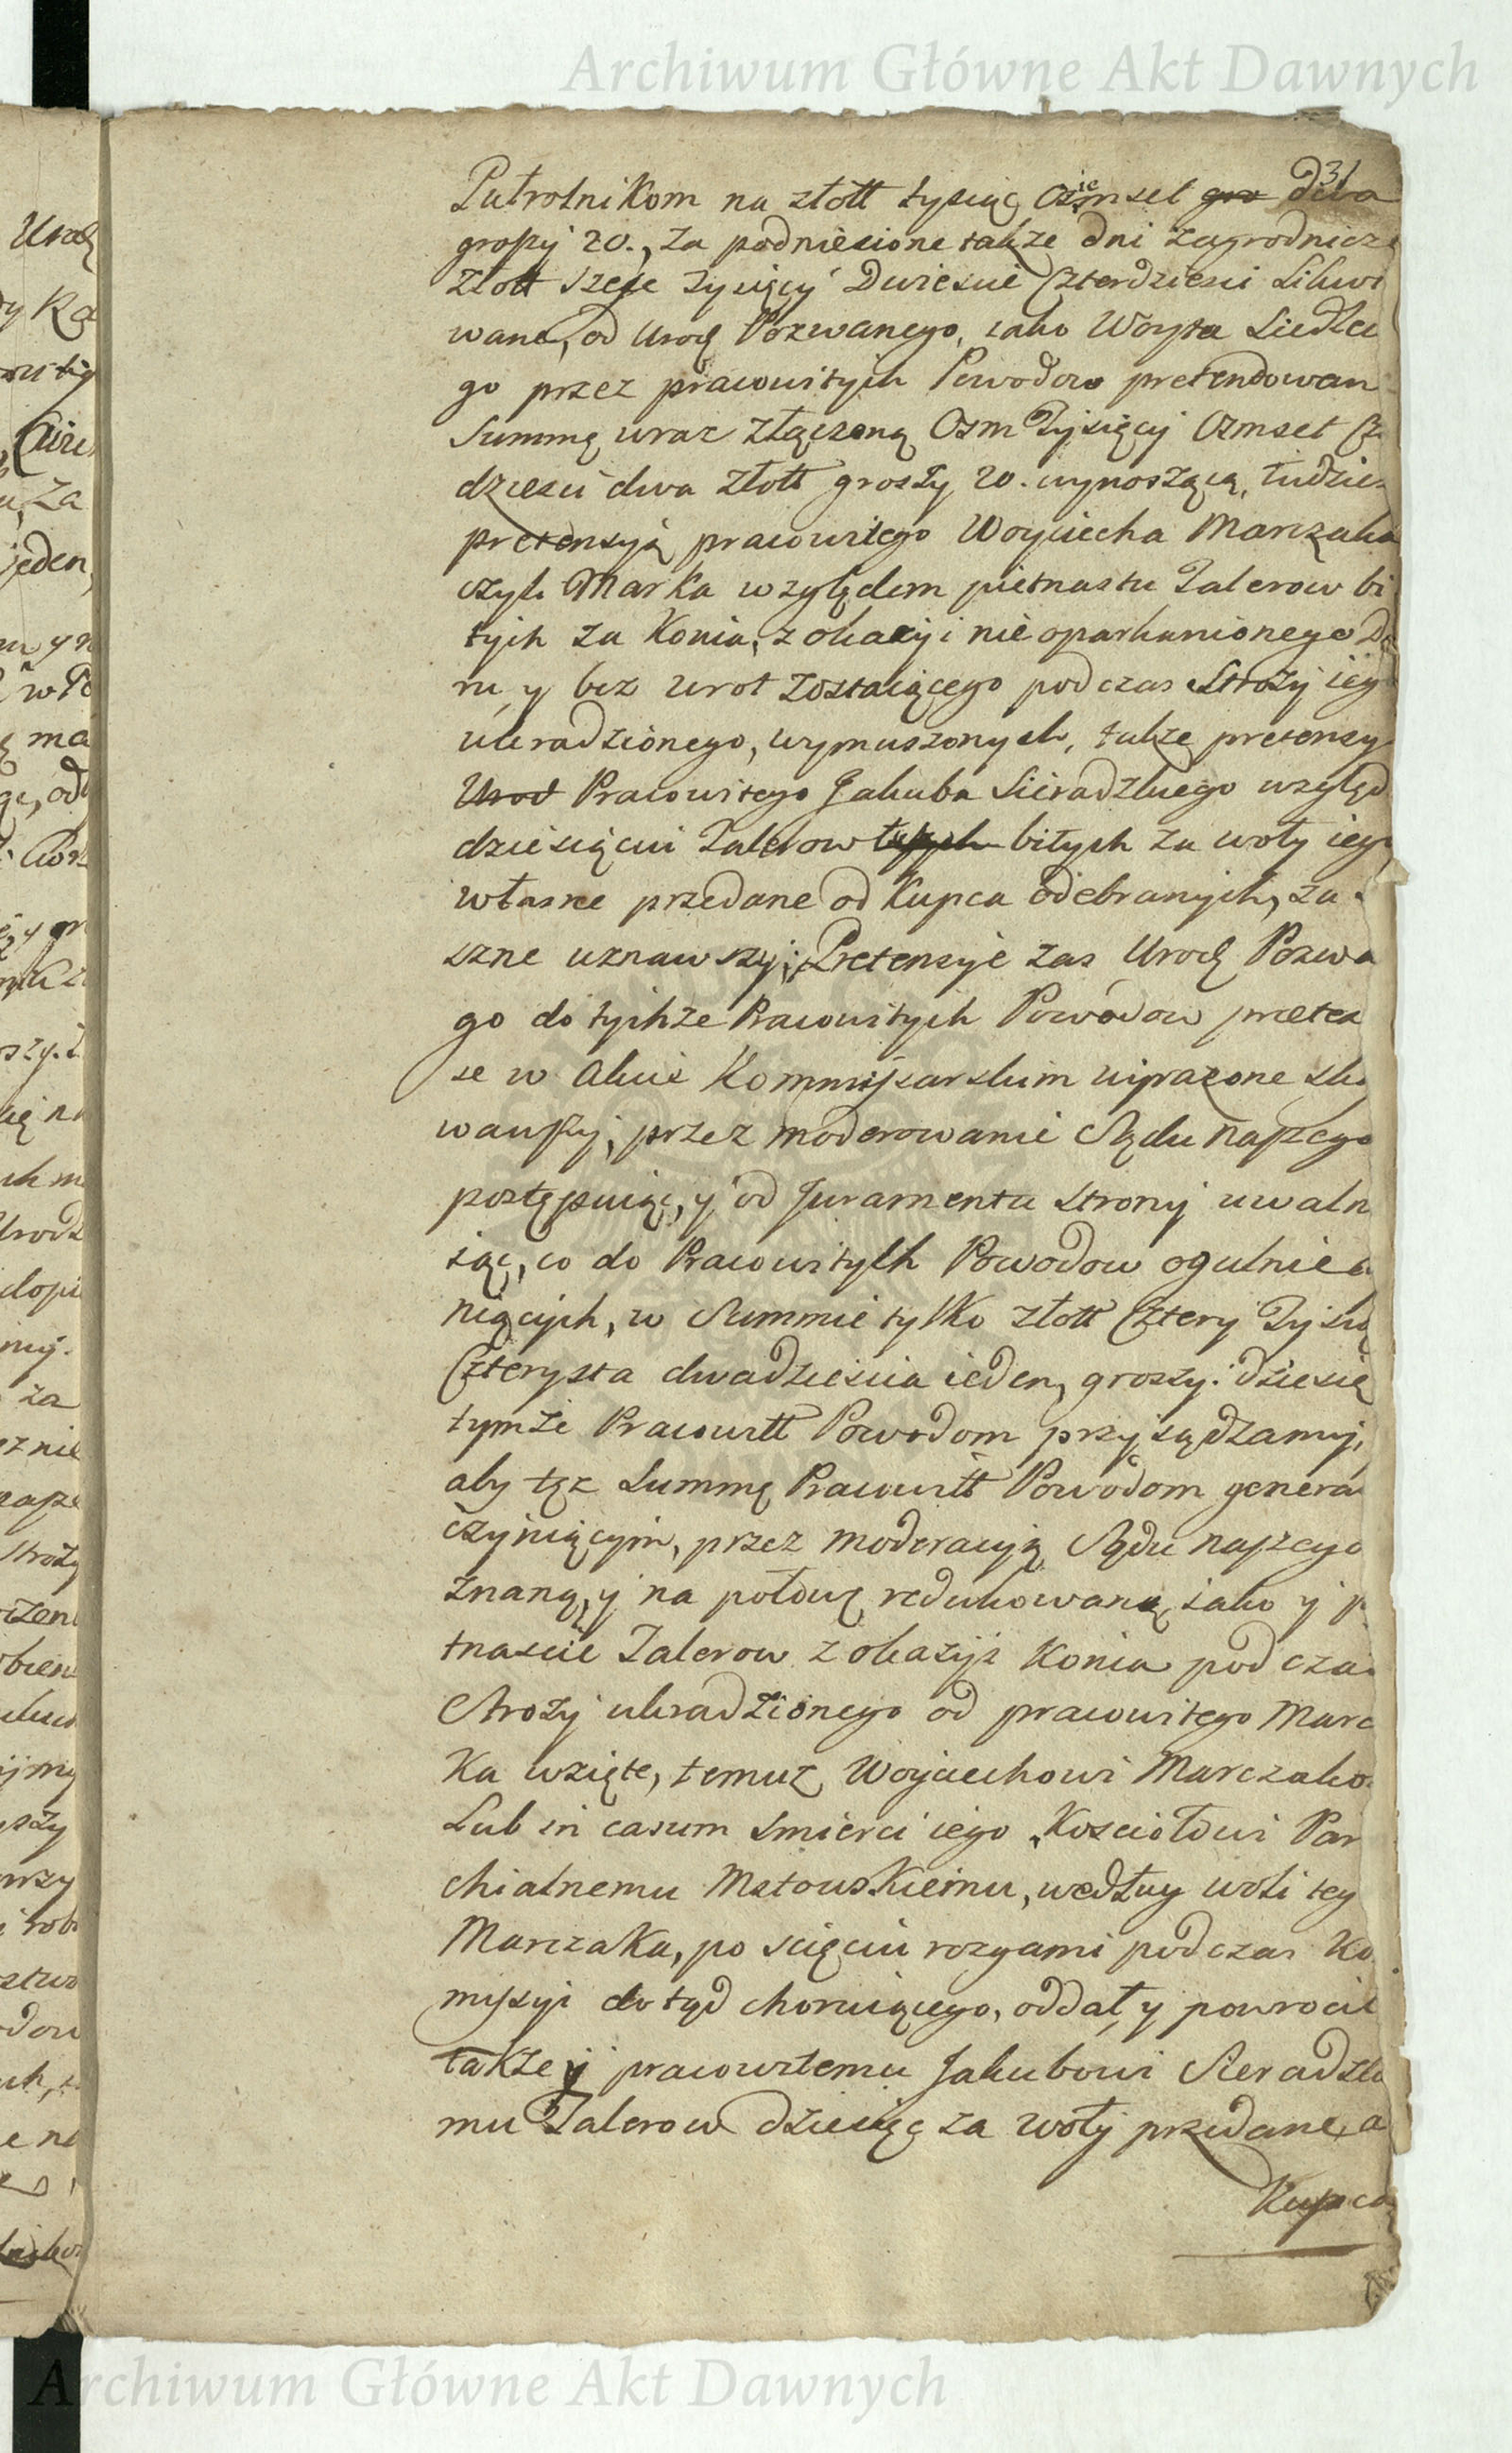 Archiwum Główne Akt Dawnych
31
Pułrolnikom na złott tysiąc Ośmset gro dwa
groszy 20., za podniesione także dni zagrodnicze
złott szesc tysięcy Dwiescie Czterdziesci Likwi
wane, od Urodz Pozwanego, iako Woyta Siedlec
go przez pracowitych Powodow pretendowan
Summę wraz złączoną Osm Tysięcy Osmset Cz
dziesci dwa złott groszy 20. wynoszącą, tudziez
pretensyią pracowitego Woyciecha Marczaka
czyli Marka względem pietnastu Talerow bi
tych za Konia, z okazyi nie oparkanionego D
ru, y bez wrot zostaiącego podczas Stroży ieg
ukradzionego, wymuszonych, także pretensy
Urod Pracowitego Jakuba Sieradzkiego względ
dziesięciu Talerow bitych za woły iego
własne przedane od Kupca odebranych, za
szne uznawszy; Pretensye zas Urodz Pozwa
go do tychze Pracowitych Powodow preten
se w Akcie Kommissarskim wyrazone ska
wawszy, przez moderowanie Sądu naszego
postępuiąc, y od Juramentu strony uwaln
iąc, co do Pracowitych Powodow ogulnie c
niących, w Summie tylko złott Cztery Tysią
Czterysta dwadziescia ieden, groszy dziesię
tymże Pracowitt Powodom przysądzamy,
aby tęz Summę Pracowitt Powodom genera
czyniącym, przez moderacyią Sądu naszego
znaną, y na połowę redukowaną, iako y p
tnascie Talerow z okazyi Konia pod czas
Stroży ukradzionego od pracowitego Marc
ka wzięte, temuz Woyciechowi Marczako
Lub in casum smierci iego Kosciołowi Par
chialnemu Mstowskiemu, według woli teg
Marczaka, po scięciu rozgami podczas Ko
missyi dotąd choruiącego, oddał, y powrocił
także y pracowitemu Jakubowi Sieradzki
mu Talerow dziesięc za woły przedane, a
Kupca
Archiwum Główne Akt Dawnych